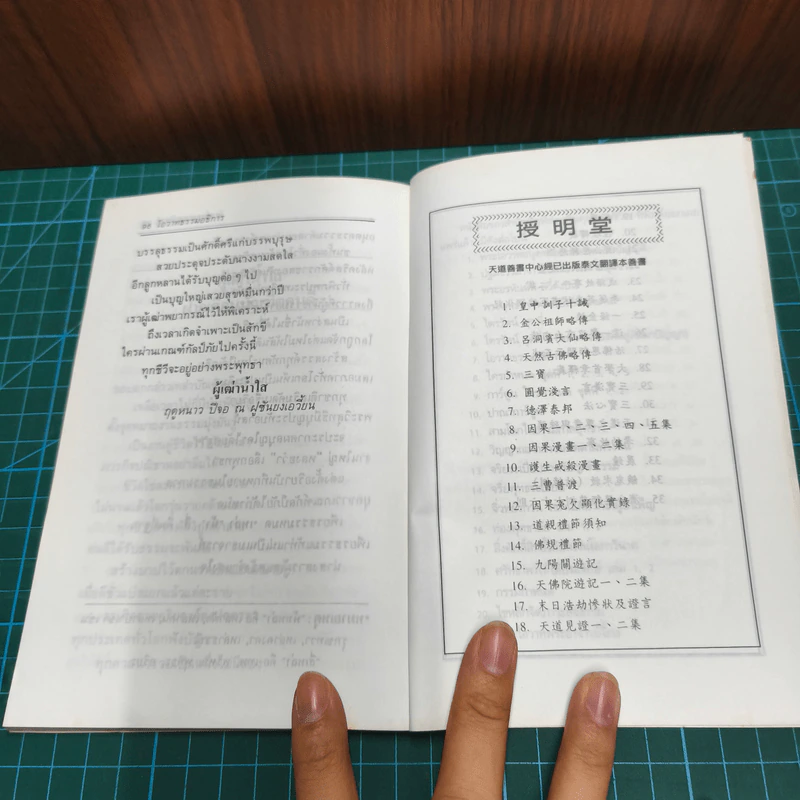 บรรลุธรรมเป็นศักดิ์ศรีแก่บรรพบุรุษ
สวยประดุจประดับนางงามสดใส
อีกลูกหลานได้รับบุญต่อ ๆ ไป
เป็นบุญใหญ่เสวยสุขหมื่นกว่าปี
เราผู้เฒ่าพยากรณ์ไว้ให้พิเคราะห์
ถึงเวลาเกิดจำเพาะเป็นสักขี
ใครผ่านเกณฑ์กัลป์ภัยไปครั้งนี้
ทุกชีวีจะอยู่อย่างพระพุทธา
ผู้เฒ่าน้ำใส
ฤดูหนาว ปีจอ ณ ฝูซันยงเอวี้ยน
授明堂
天道善書中心經已出版泰文翻譯本善書
1. 皇申訓子十誡
2. 金公祖師略傳
3. 呂洞賓大仙略傳
4. 天然古佛略傳
5. 三寶
6. 圓覺淺言
7. 德澤泰邦
8. 因果一、二、三、四、五集
9. 因果漫畫一、二集
10. 護生戒殺漫畫
11. 三曹普渡
12. 因果冤欠顯化實錄
13. 道親禮節須知
14. 佛規禮節
15. 九陽關遊記
16. 天佛院遊記一、二集
17. 末日浩劫慘狀及證言
18. 天道見證一、二集